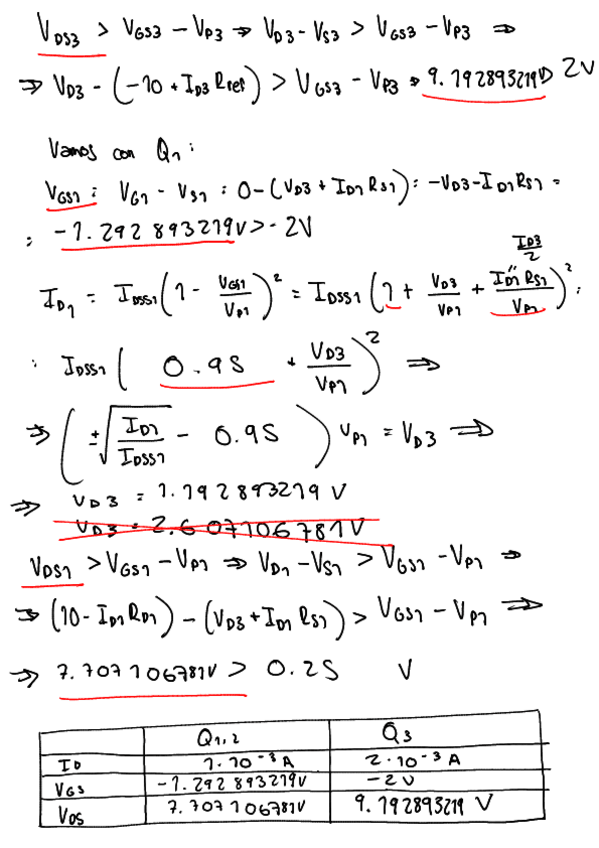 V_DS3 > V_GS3 - V_P3 ⇒ V_D3 - V_S3 > V_GS3 - V_P3 ⇒
⇒ V_D3 - (-10 + I_D3 R_ref) > V_GS3 - V_P3 ⇒ 9.192893219V > 2V
Vamos con Q1:
V_GS1 = V_G1 - V_S1 = 0 - (V_D3 + I_D1 R_S1) = -V_D3 - I_D1 R_S1 =
= -1.292893219V > -2V
I_D1 = I_DSS1 (1 - V_GS1/V_P1)^2 = I_DSS1 (1 + V_D3/V_P1 + I_D1 R_S1/V_P1)^2 =
I_D3/2 "
= I_DSS1 ( 0.95 + V_D3/V_P1 )^2 ⇒
⇒ ( ±√(I_D1/I_DSS1) - 0.95 ) V_P1 = V_D3 ⇒
⇒ V_D3 = 1.192893219 V
V_D3 = 2.607106781V
V_DS1 > V_GS1 - V_P1 ⇒ V_D1 - V_S1 > V_GS1 - V_P1 ⇒
⇒ (10 - I_D1 R_D1) - (V_D3 + I_D1 R_S1) > V_GS1 - V_P1 ⇒
⇒ 7.707106781V > 0.25 V
Q1,2 Q3
ID 1·10^-3 A 2·10^-3 A
VGS -1.292893219V -2V
VDS 7.707106781V 9.192893219 V